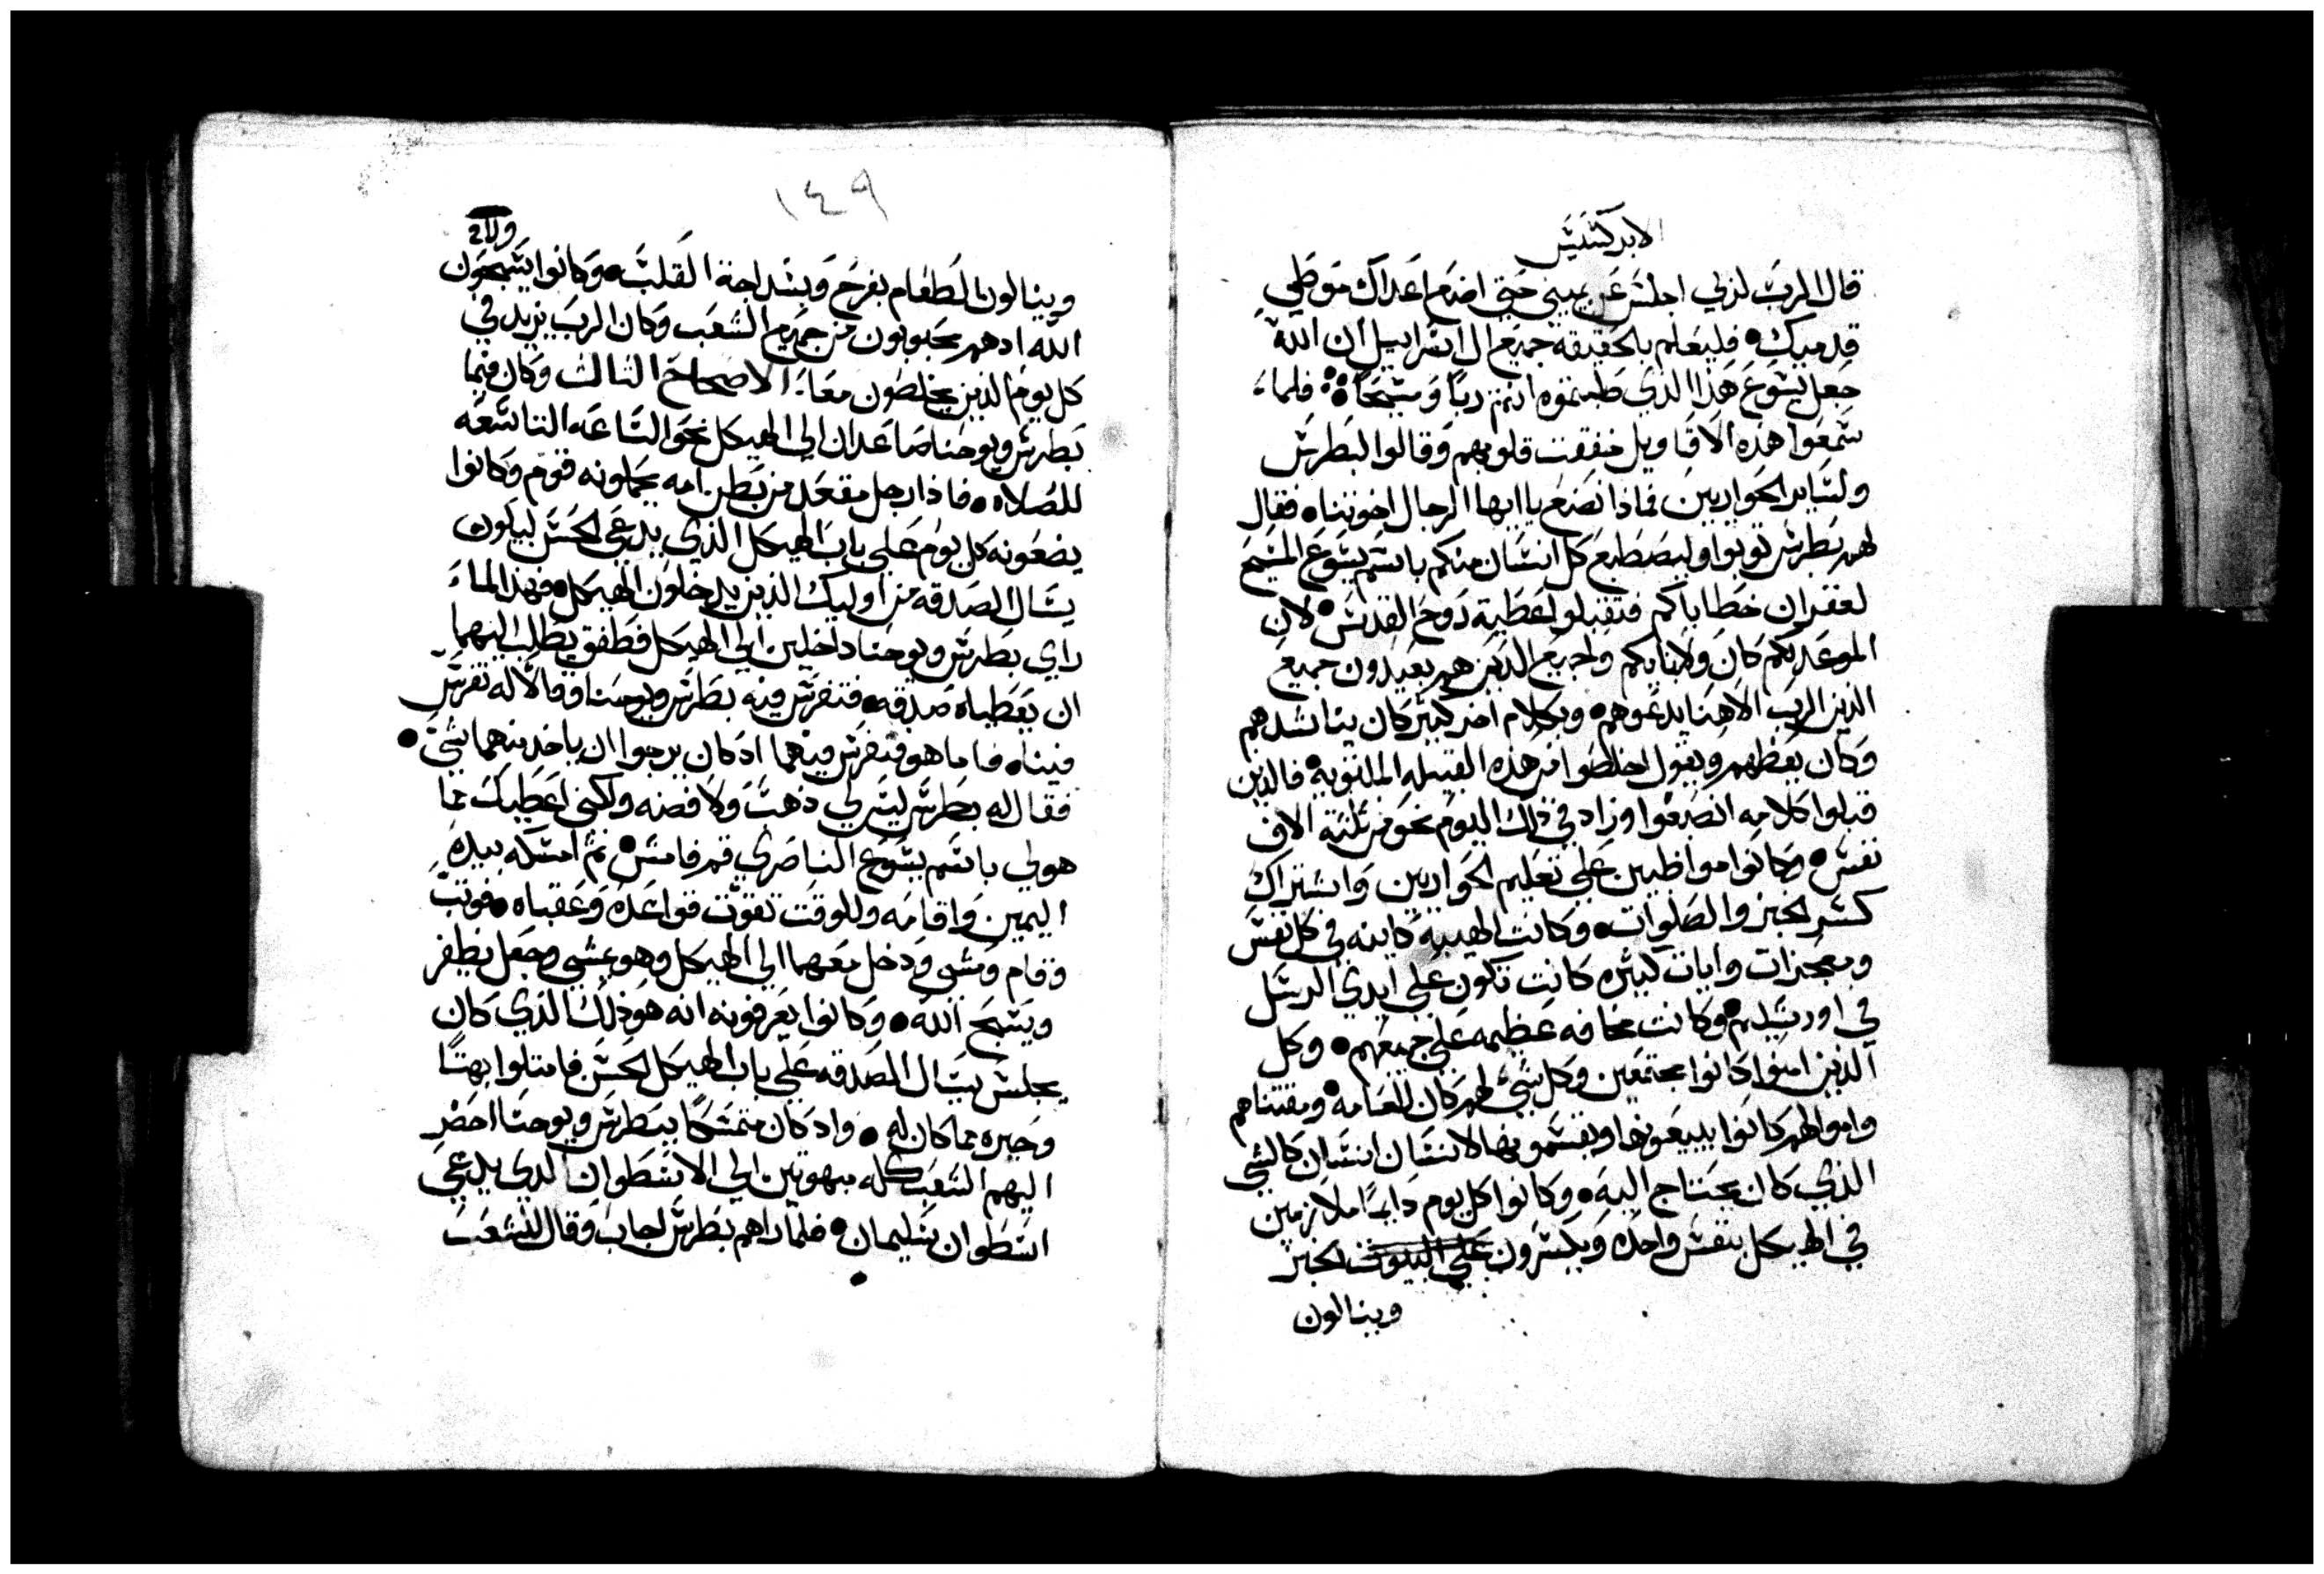 الابركسيس
قال الرب لربي اجلس عن يميني حتي اضع اعداك موطي
قدميك • فليعلم بالحقيقه جميع ال اسراييل ان الله
جعل يسوع هذا الذي صلبتموه انتم ربا ومسيحا ❖ فلما
سمعوا هذه الاقاويل خفقت قلوبهم وقالوا لبطرس
ولساير الحواريين فماذا نصنع يا ايها الرجال اخوتنا • فقال
لهم بطرس توبوا وليصطبع كل انسان منكم باسم يسوع المسيح
لغفران خطاياكم فتقبلوا عطية روح القدس • لان
الموعد لكم كان ولابنايكم ولجميع الذين هم بعيدون جميع
الذين الرب الاهنا يدعوهم • وبكلام اخر كثير كان يناشدهم
وكان يعظهم ويقول اخلصوا من هذه القبيله الملتويه • فالذين
قبلوا كلامه انصبغوا وزاد في ذلك اليوم نحو من ثلثة الاف
نفس • وكانوا مواظبين علي تعليم الحواريين واشتراك
كسر الخبز والصلوات • وكانت الهيبه كاينه في كل نفس
ومعجزات وايات كثيره كانت تكون علي ايدي الرسل
في اورشليم • وكانت مخافه عظيمه علي جميعهم • وكل
الذين امنوا كانوا مجتمعين وكل شي لهم كان للعامه • ومقتناهم
واموالهم كانوا يبيعونها ويقسمونها لانسان انسان كالشي
الذي كان يحتاج اليه • وكانوا كل يوم دايما ملازمين
في الهيكل بنفس واحده ويكسرون علي البيوت الخبز
وينالون
١٤٩
وينالون الطعام بفرح وبسداجة القلب • وكانوا يسبحون
الله اد هم محبوبون من جميع الشعب وكان الرب يزيد في
كل يوم الذين يخلصون معا . الاصحاح التالت وكان فيما
بطرس ويوحنا صاعدان الي الهيكل نحو الساعه التاسعه
للصلاه • فاذا رجل مقعد من بطن امه يحملونه قوم وكانوا
يضعونه كل يوم علي باب الهيكل الذي يدعي الحسن ليكون
يسال الصدقه من اوليك الذين يدخلون الهيكل • فهذا لما
راي بطرس ويوحنا داخلين الي الهيكل فطفق يطلب اليهما
ان يعطياه صدقه • فتفرس فيه بطرس ويوحنا وقالا له تفرس
فينا • فاما هو فتفرس فيهما ادكان يرجوا ان ياخد منهما شي •
فقال له بطرس ليس لي ذهب ولا فضه ولكني اعطيك مما
هو لي باسم يسوع الناصري قم فامش • ثم امسكه بيده
اليمين واقامه وللوقت تقوت قواعده وعقباه • فوتب
وقام ومشي ودخل معهما الي الهيكل وهو يمشي وجعل يطفر
ويسبح الله • وكانوا يعرفونه انه هو ذلك الذي كان
يجلس يسال الصدقه علي باب الهيكل الحسن فامتلوا بهتا
وحيره مما كان له • واد كان متمسكا ببطرس ويوحنا احضر
اليهم الشعب كله مبهوتين الي الاسطوان الدي يدعي
اسطوان سليمان • فلما راهم بطرس اجاب وقال للشعب